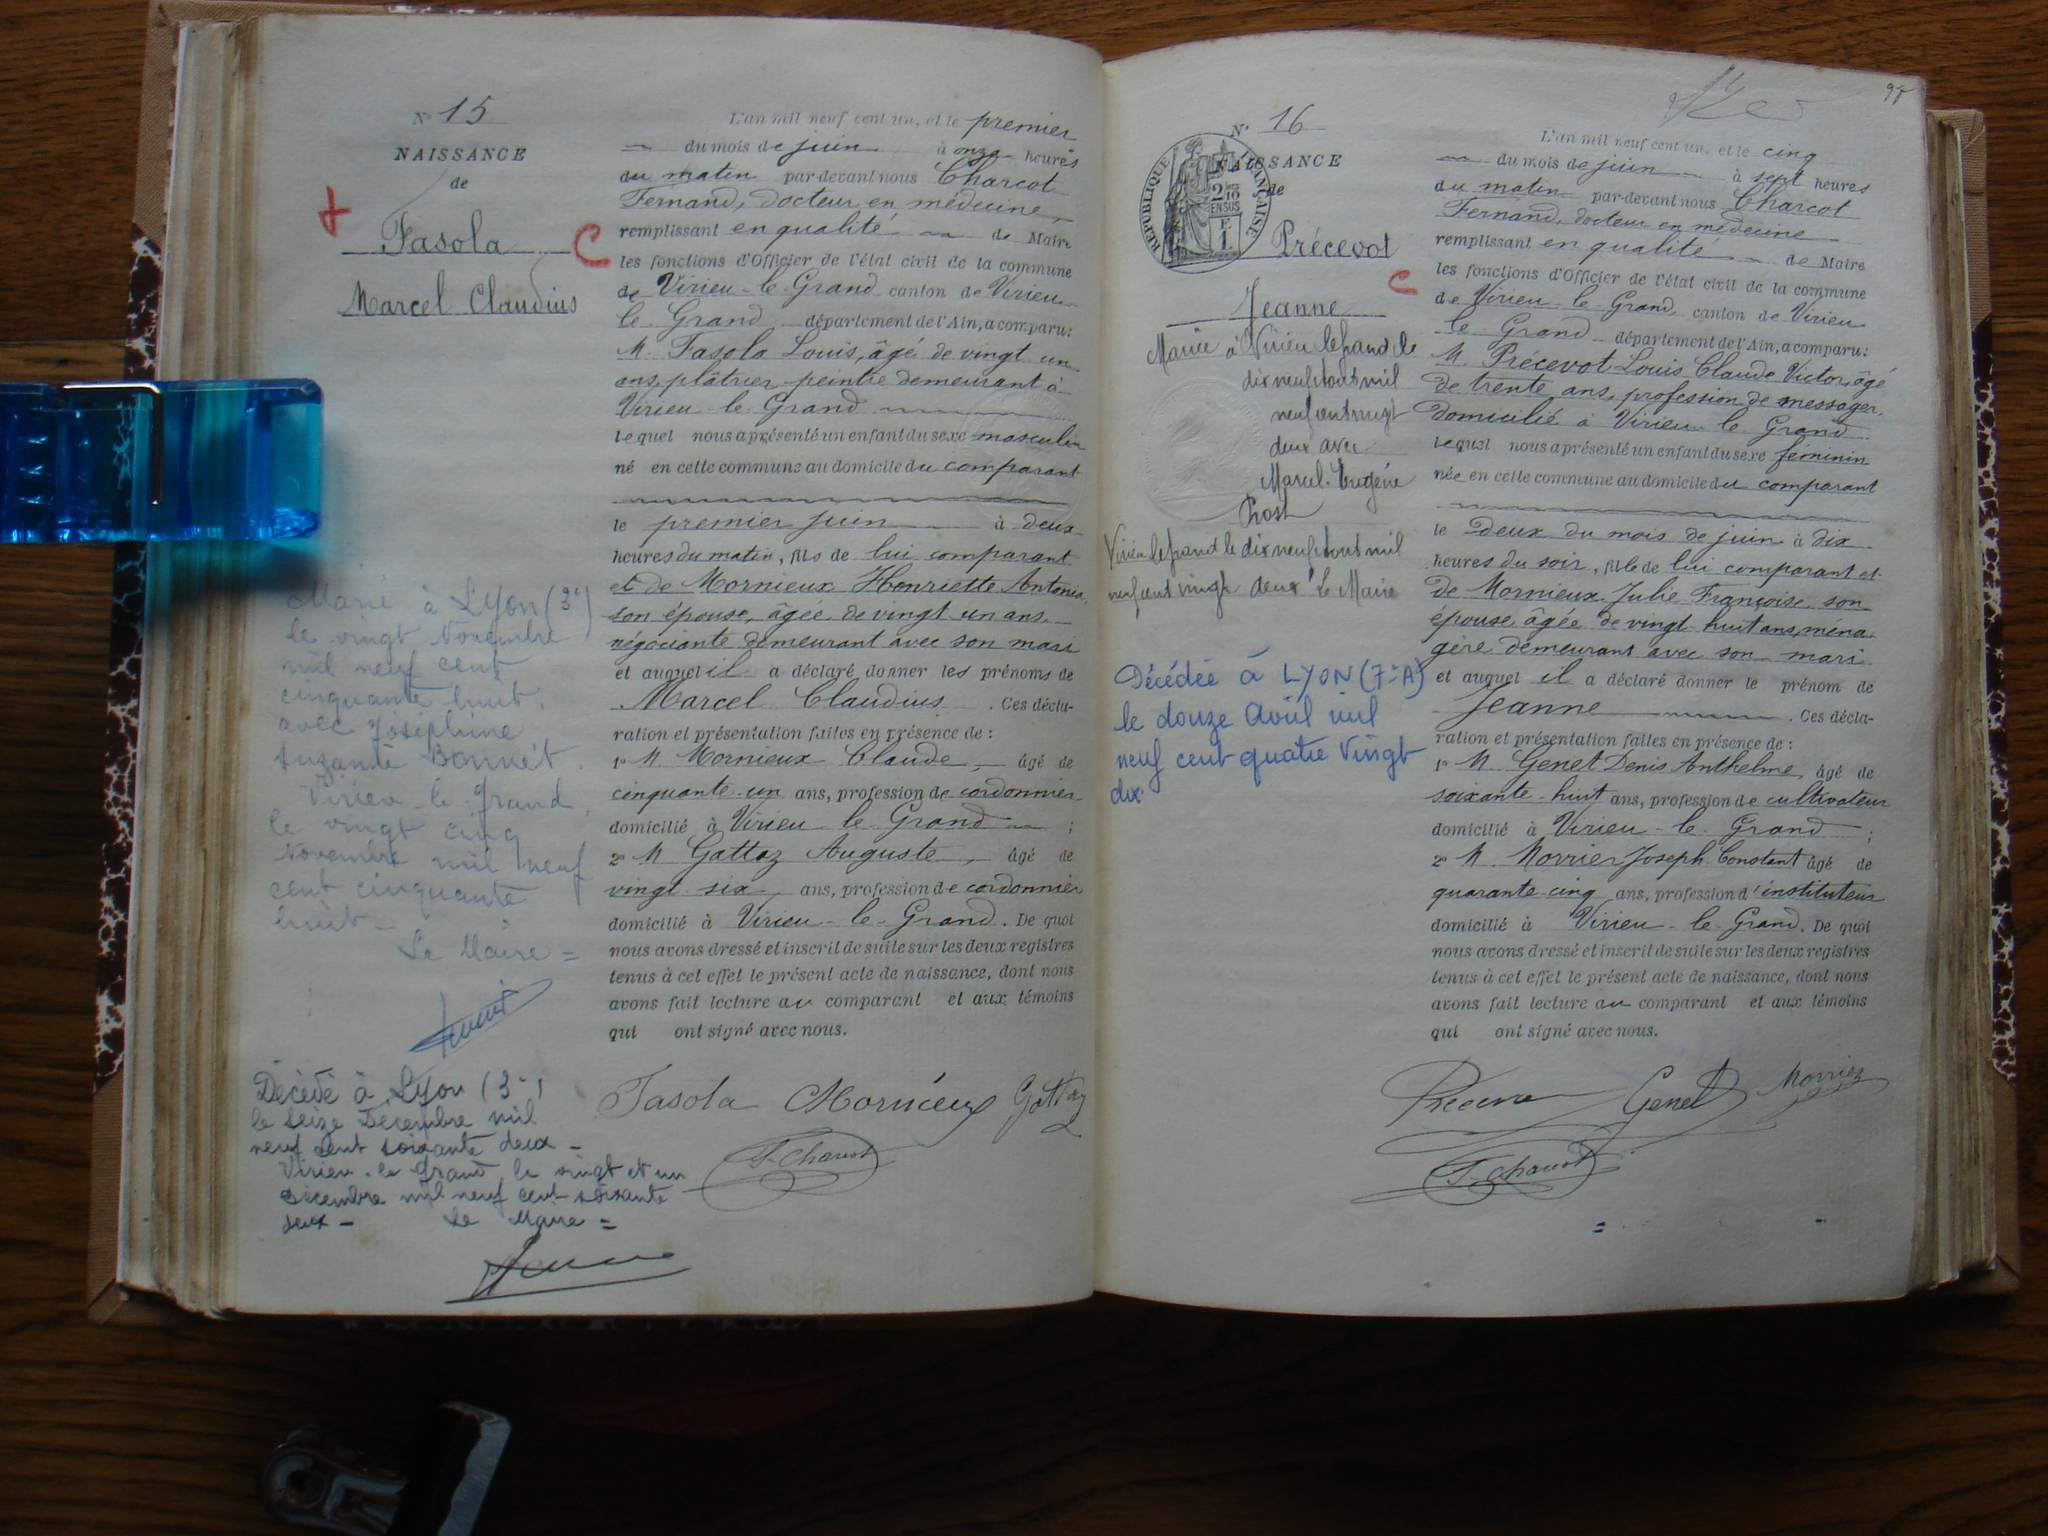 N° 15
NAISSANCE
de
Fasola
Marcel Claudius
L'an mil neuf cent un, et le premier
du mois de juin à onze heures
du matin par-devant nous Charcot
Fernand, docteur en médecine,
remplissant en qualité de Maire
C les fonctions d'Officier de l'état civil de la commune
de Virieu-le-Grand canton de Virieu-
le-Grand département de l'Ain, a comparu:
M. Fasola Louis, âgé de vingt un
ans, plâtrier peintre demeurant à
Virieu-le-Grand
lequel nous a présenté un enfant du sexe masculin
né en cette commune au domicile du comparant
le premier juin à deux
heures du matin, fils de lui comparant
et de Mornieux Henriette Antonia
son épouse, âgée de vingt un ans
négociante demeurant avec son mari
et auquel il a déclaré donner les prénoms de
Marcel Claudius. Ces décla-
ration et présentation faites en présence de :
1° M. Mornieux Claude, âgé de
cinquante-un ans, profession de cordonnier
domicilié à Virieu-le-Grand ;
2° M. Gattaz Auguste, âgé de
vingt-six ans, profession de cordonnier
domicilié à Virieu-le-Grand. De quoi
nous avons dressé et inscrit de suite sur les deux registres
tenus à cet effet le présent acte de naissance, dont nous
avons fait lecture au comparant et aux témoins
qui ont signé avec nous.
Fasola Mornieux Gattaz
F. Charcot
Marié à Lyon (3e)
le vingt Novembre
mil neuf cent
cinquante huit
avec Joséphine
Suzanne Bonnet.
Virieu-le-Grand,
le vingt cinq
Novembre mil neuf
cent cinquante
huit-
Le Maire =
Décédé à Lyon (3e)
le seize Décembre mil
neuf cent soixante deux-
Virieu-le-Grand, le vingt et un
Décembre mil neuf cent soixante
deux- Le Maire =
N° 16
NAISSANCE
de
RÉPUBLIQUE FRANÇAISE
2/10 EN SUS
E 1
Précevot
Jeanne
Mariée à Virieu le grand le
dix neuf août mil
neuf cent vingt
deux avec
Marcel Eugène
Prost
Virieu le grand le dix neuf août mil
neuf cent vingt deux Le Maire
Décédée à LYON (7e A)
le douze Avril mil
neuf cent quatre vingt
dix
L'an mil neuf cent un, et le cinq
du mois de juin à sept heures
du matin par-devant nous Charcot
Fernand, docteur en médecine
remplissant en qualité de Maire
C les fonctions d'Officier de l'état civil de la commune
de Virieu-le-Grand, canton de Virieu
le Grand département de l'Ain, a comparu:
M. Précevot Louis Claude Victor, âgé
de trente ans, profession de messager,
domicilié à Virieu-le-Grand
lequel nous a présenté un enfant du sexe féminin
née en cette commune au domicile du comparant
le Deux du mois de juin à dix
heures du soir, fille de lui comparant et
de Mornieux Julie Françoise, son
épouse, âgée de vingt huit ans, ména-
gère demeurant avec son mari
et auquel il a déclaré donner le prénom de
Jeanne. Ces décla-
ration et présentation faites en présence de :
1° M. Genet Denis Anthelme, âgé de
soixante-huit ans, profession de cultivateur
domicilié à Virieu-le-Grand ;
2° M. Morrier Joseph Constant âgé de
quarante-cinq ans, profession d'instituteur
domicilié à Virieu-le-Grand. De quoi
nous avons dressé et inscrit de suite sur les deux registres
tenus à cet effet le présent acte de naissance, dont nous
avons fait lecture au comparant et aux témoins
qui ont signé avec nous.
Genet Morrier
F. Charcot